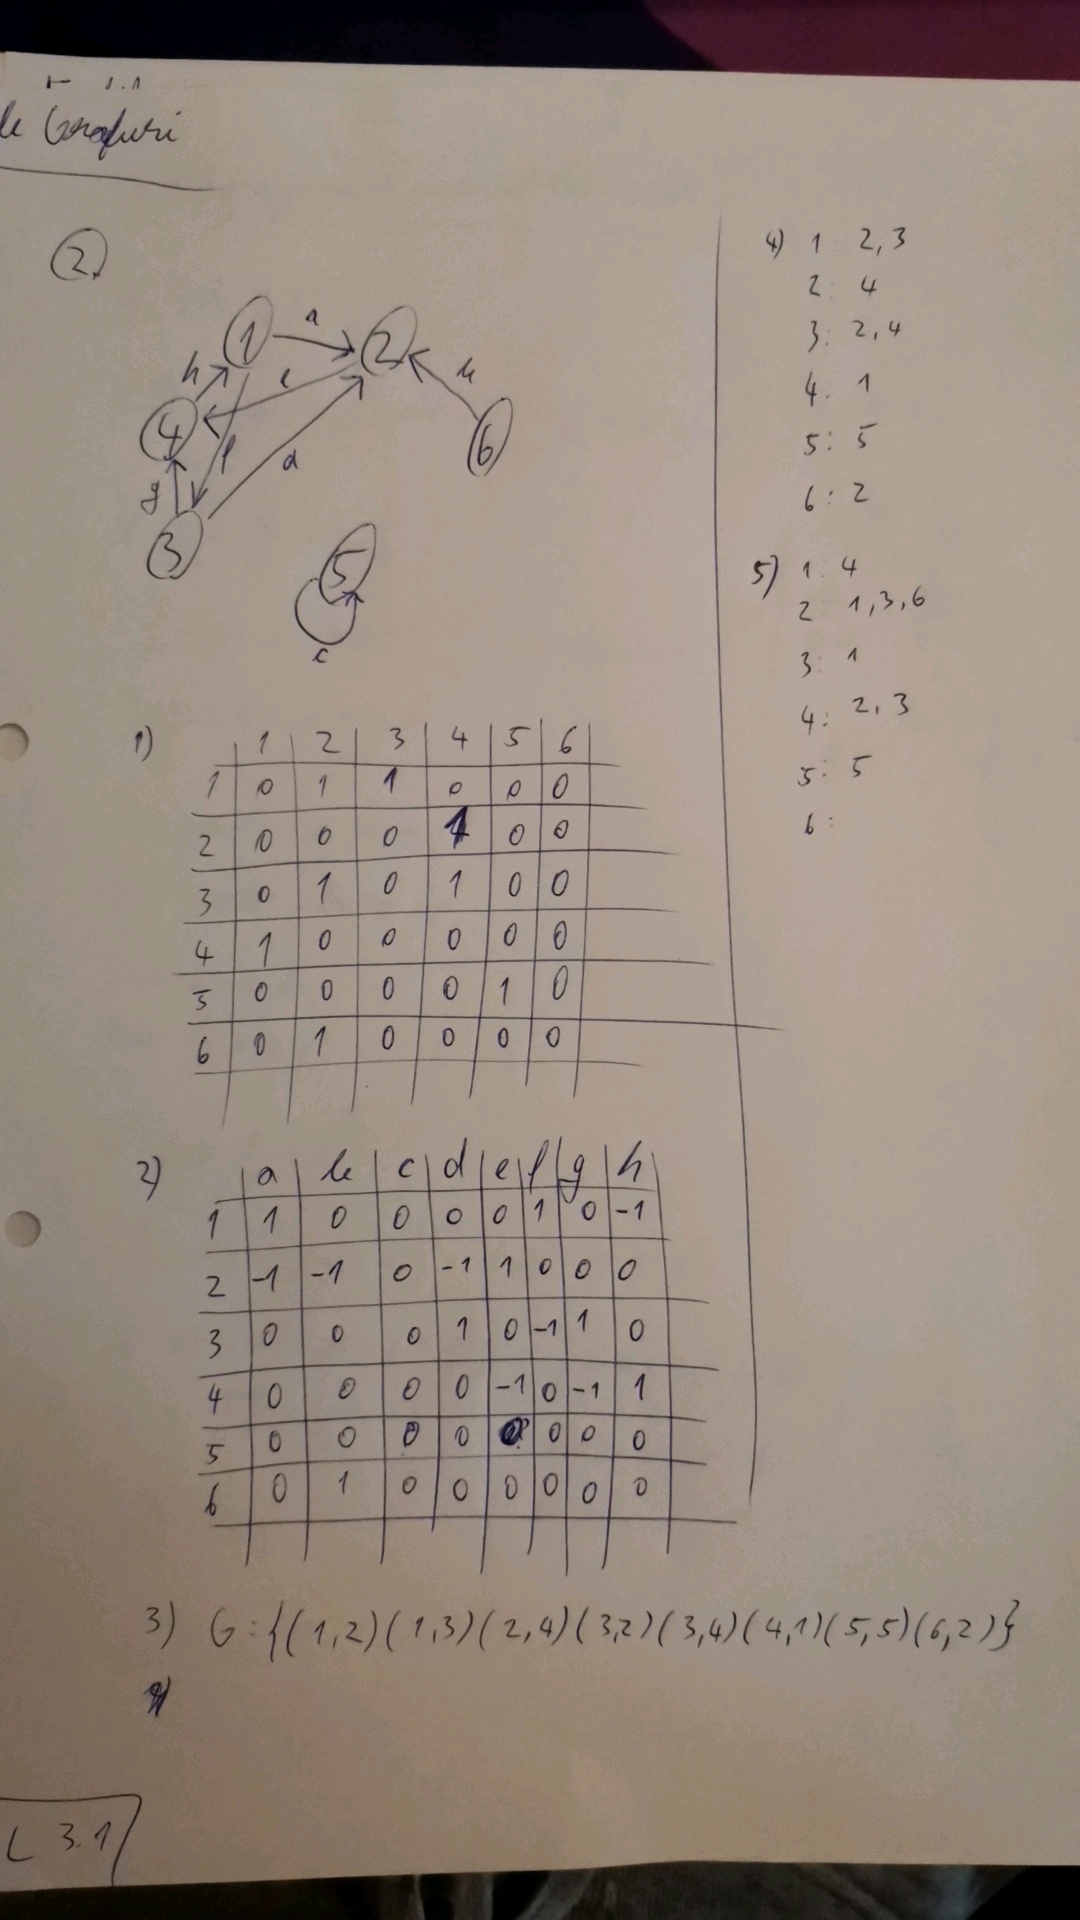 le Grafuri
2
1 a 2
h e b
4 6
f
g d
3
5
c
1)
1 2 3 4 5 6
1 0 1 1 0 0 0
2 0 0 0 1 0 0
3 0 1 0 1 0 0
4 1 0 0 0 0 0
5 0 0 0 0 1 0
6 0 1 0 0 0 0
2)
a b c d e f g h
1 1 0 0 0 0 1 0 -1
2 -1 -1 0 -1 1 0 0 0
3 0 0 0 1 0 -1 1 0
4 0 0 0 0 -1 0 -1 1
5 0 0 0 0 0 0 0 0
6 0 1 0 0 0 0 0 0
3) G:{(1,2)(1,3)(2,4)(3,2)(3,4)(4,1)(5,5)(6,2)}
L 3.1
4) 1 2,3
2: 4
3: 2,4
4. 1
5: 5
6: 2
5) 1. 4
2 1,3,6
3: 1
4: 2,3
5: 5
6: